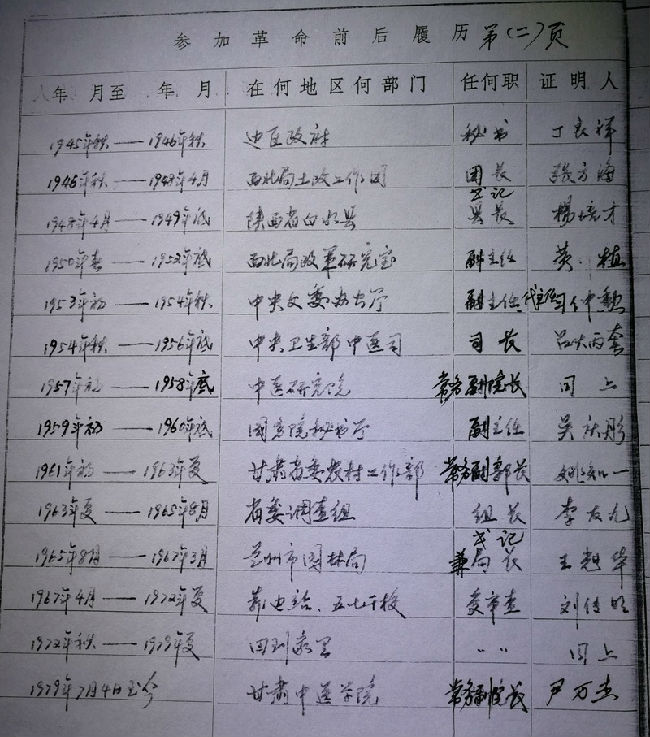 参加革命前后履历第(二)页
年 月至 年 月 在何地区何部门 任何职 证明人
1945年秋——1946年秋 边区政府 秘书 丁良祥
1946年秋——1948年4月 西北局土改工作团 团长 张方海
1948年4月——1949年底 陕西省白水县 书记 县长 杨培才
1950年春——1952年底 西北局政策研究室 副主任 黄植
1953年初——1954年秋 中央文委办公厅 副主任 代主任 习仲勋
1954年秋——1956年底 中央卫生部中医司 司长
1957年初——1958年底 中医研究院 常务副院长 同上
1959年初——1960年底 国务院秘书厅 副主任 吴庆彤
1961年初——1963年夏 甘肃省委农村工作部 常务副部长
1963年夏——1965年8月 省委调查组 组长 李友九
1965年8月——1967年3月 兰州市园林局 书记 兼局长 王
1967年4月——1972年夏 靠边站、五七干校 受审查 刘
1972年秋——1979年夏 回到家里 〃 〃 同上
1979年7月4日至今 甘肃中医学院 常务副院长 尹